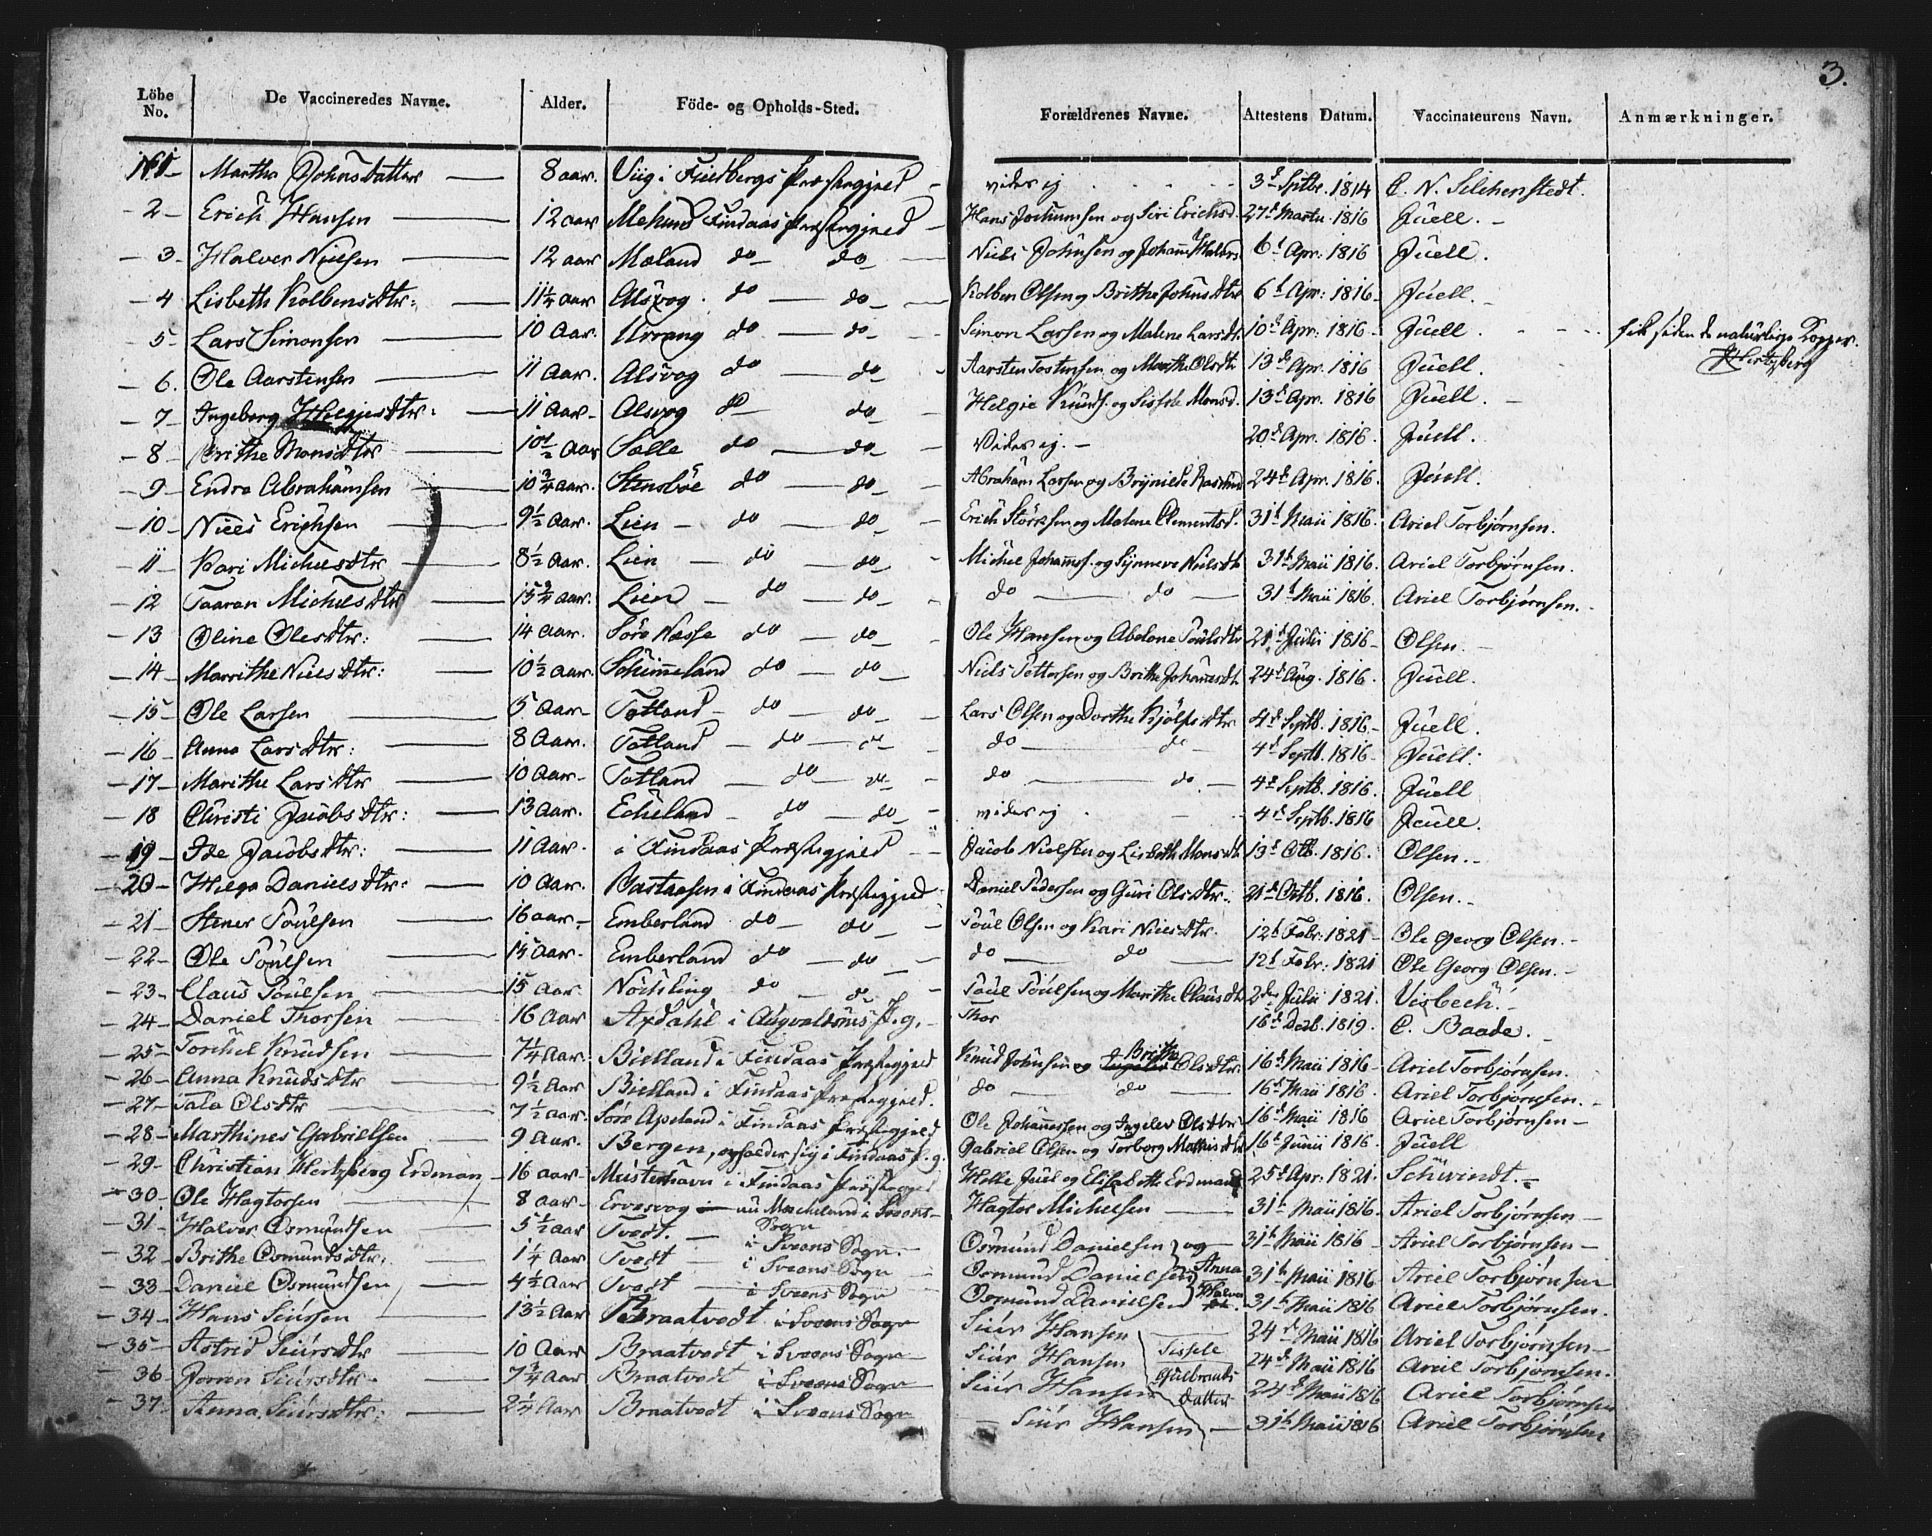 3.
Löbe No. De Vaccineredes Navne. Alder. Föde- og Opholds-Sted. Forældrenes Navne. Attestens Datum. Vaccinateurens Navn. Anmærkninger.
161 Martha Johnsdatter 8 aar. Viig i Præstegjeld vides ej 3d Sptbr. 1814 C. N.
2 Erich Hansen 12 aar Findaas Præstegjeld Hans Jochumsen og Siri Erichsd. 27d Martii 1816 Juell.
3 Halver Nielsen 12 aar Mæland do do Niels Johnsen og Johanne Halvors 6t Apr: 1816 Juell.
4 Lisbeth Kolbensdtr: 11¼ aar Alsvog. do do Kolben Olsen og Brithe Johnsdtr 6t Apr: 1816 Juell.
5 Lars Simonsen 10 Aar. Urvang do do Simon Larsen og Malene Larsdtr 10d Apr. 1816 Juell. fik siden de naturlige Kopper. Hertzberg
6. Ole Aarstensen 11 Aar. Alsvog do do Aarsten Tostensen og Marthe Olsdtr 13d Apr. 1816 Juell.
7 Ingeborg Helgiesdtr: 11 Aar Alsvog do do Helgie Knuds. og Sissele Monsd. 13d Apr. 1816 Juell.
8 Brithe Monsdtr 10½ Aar Sælle do do Vides ej. 20d Apr. 1816. Juell.
9 Endre Abrahamsen 10¾ Aar. Stensböe do do Abraham Larsen og Brynilde 24d Apr. 1816. Juell.
10 Niels Erichsen 9½ Aar. Lien do do Erich Störksen og Malene Clementsd. 31t Maii 1816. Ariel Torbjørnsen.
11 Kari Michelsdtr 8½ Aar. Lien do do Michel Johannes. og Synneve Nielsdtr 31t Maii 1816. Ariel Torbjørnsen.
12 Taaran Michelsdtr 15¾ Aar. Lien do do do do 31t Maii 1816. Ariel Torbjørnsen.
13 Oline Olesdtr: 14 Aar. Söre Næsse do do Ole Hansen og Abelone Poulsdtr 21t Julii 1816 Olsen.
14 Marrithe Nielsdtr: 10½ Aar. Schimmeland do do Niels Pettersen og Brithe Johannesdt. 24d Aug. 1816. Juell.
15 Ole Larsen 5 Aar Totland do do Lars Olsen og Dorthe Kjölfsdtr 4d Septb. 1816 Juell.
16 Anna Larsdtr: 8 Aar. Totland do do do do 4d Septb. 1816 Juell.
17 Marithe Larsdtr 10 Aar Totland do do do do 4d Septb. 1816. Juell
18 Christi Jacobsdtr: 13 Aar. Echeland do do vides ej 4d Septb. 1816 Juell.
19 Ide Jacobsdtr: 11 Aar. i Findaas Præstegjeld Jacob Nielsen og Lisbeth Monsdt. 13d Otb. 1816. Olsen.
20 Helga Danielsdtr: 10 Aar. i Findaas Præstegjeld Daniel Pedersen og Guri Olsdtr. 21d Octb. 1816. Olsen.
21 Stener Poulsen 16 aar Emberland do do Poul Olsen og Kari Nielsdtr. 12t Febr: 1821 Ole Georg Olsen.
22 Ole Poulsen 14 Aar. Emberland do do do do 12t Febr: 1821 Ole Georg Olsen.
23 Claus Poulsen 15 Aar. Nochling do do Poul Poulsen og Marithe Clausdt. 2den Julii 1821. Visbech.
24 Daniel Thorsen 16 Aar Axdahl i Augvaldsnæs P.g. Thor 16d Decb. 1819. C. Baade.
25 Torchel Knudsen 7¼ Aar. Bielland i Findaas Præstegjeld Knud Johnsen og Brithe Olsdtr. 16d Maii 1816 Ariel Torbjørnsen.
26 Anna Knudsdtr 9½ Aar Bielland i Findaas Præstegjeld. do do 16d Maii 1816. Ariel Torbjørnsen.
27 Tala Olsdtr 7½ Aar. Söre Apeland i Findaas Præstegjeld Ole Johannesen og Ingelev Olsdtr 16d Maii 1816 Ariel Torbjørnsen
28 Marthines Gabrielsen 9 Aar. Bergen, opholder sig i Findaas P.g. Gabriel Olsen og Torborg Mathisdtr 16d Junii 1816. Juell
29 Christian Hertzberg Erdman 16 aar Mosterhavn i Findaas Præstegjeld Helle Juel og Elisabeth Erdman 25d Apr: 1821. Schwindt.
30 Ole Hagtorsen 8 aar Ervesvog nu i Sveens Sogn Hagtor Michelsen 31t Maii 1816. Ariel Torbjørnsen
31 Halver Osmundsen 5½ aar Tvedt. i Sveens Sogn. Osmund Danielsen og 31t Maii 1816 Ariel Torbjørnsen
32 Brithe Osmundsdtr: 1¼ Aar Tvedt i Sveens Sogn Osmund Danielsen Anna 31t Maii 1816 Ariel Torbjørnsen
33 Daniel Osmundsen 4½ Aar Tvedt i Sveens Sogn Osmund Danielsen 31t Maii 1816 Ariel Torbjørnsen.
34 Hans Siursen 13½ Aar Braatvedt i Sveens Sogn Siur Hansen 24d Maii 1816 Ariel Torbjørnsen
35 Astrid Siursdtr 10 Aar Braatvedt i Sveens Sogn Siur Hansen Sissele 24d Maii 1816 Ariel Torbjørnsen.
36 Jorren Siursdtr 7¾ Aar Braatvedt i Sveens Sogn Siur Hansen Gulbrands 24d Maii 1816 Ariel Torbjørnsen
37 Anna Siursdtr: 2¼ Aar Braatvedt i Sveens Sogn Siur Hansen datter 31t Maii 1816 Ariel Torbjørnsen